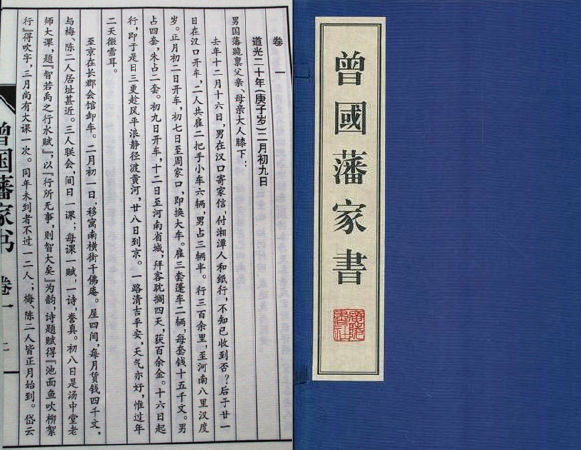 曾國藩家書
卷一
道光二十年(庚子岁)二月初九日
男国藩跪禀父亲、母亲大人膝下:
去年十二月十六日,男在汉口寄家信,付湘潭人和纸行,不知已收到否?后于廿一
日在汉口开车,二人共雇二把手小车六辆,男占三辆半。行三百余里,至河南八里汊度
岁。正月初二日开车,初七日至周家口,即换大车。雇三套篷车二辆,每套钱十五千文。男
占四套,朱占二套。初九日开车,十二日至河南省城,拜客耽搁四天,获百余金。十六日起
行,即于是日三更趁风平浪静径渡黄河,廿八日到京。一路清吉平安,天气亦好,惟过年
二天微雪耳。
至京在长郡会馆卸车。二月初一日,移寓南横街千佛庵。屋四间,每月赁钱四千文,
与梅、陈二人居址甚近。三人联会,间日一课;每课一赋、一诗,誊真。初八日是汤中堂老
师大课,题"智若禹之行水赋",以"行所无事,则智大矣"为韵;诗题赋得"池面鱼吹柳絮
行"得吹字,三月尚有大课一次。同年未到者不过一二人;梅、陈二人皆正月始到。岱云
曾国藩家书 卷一